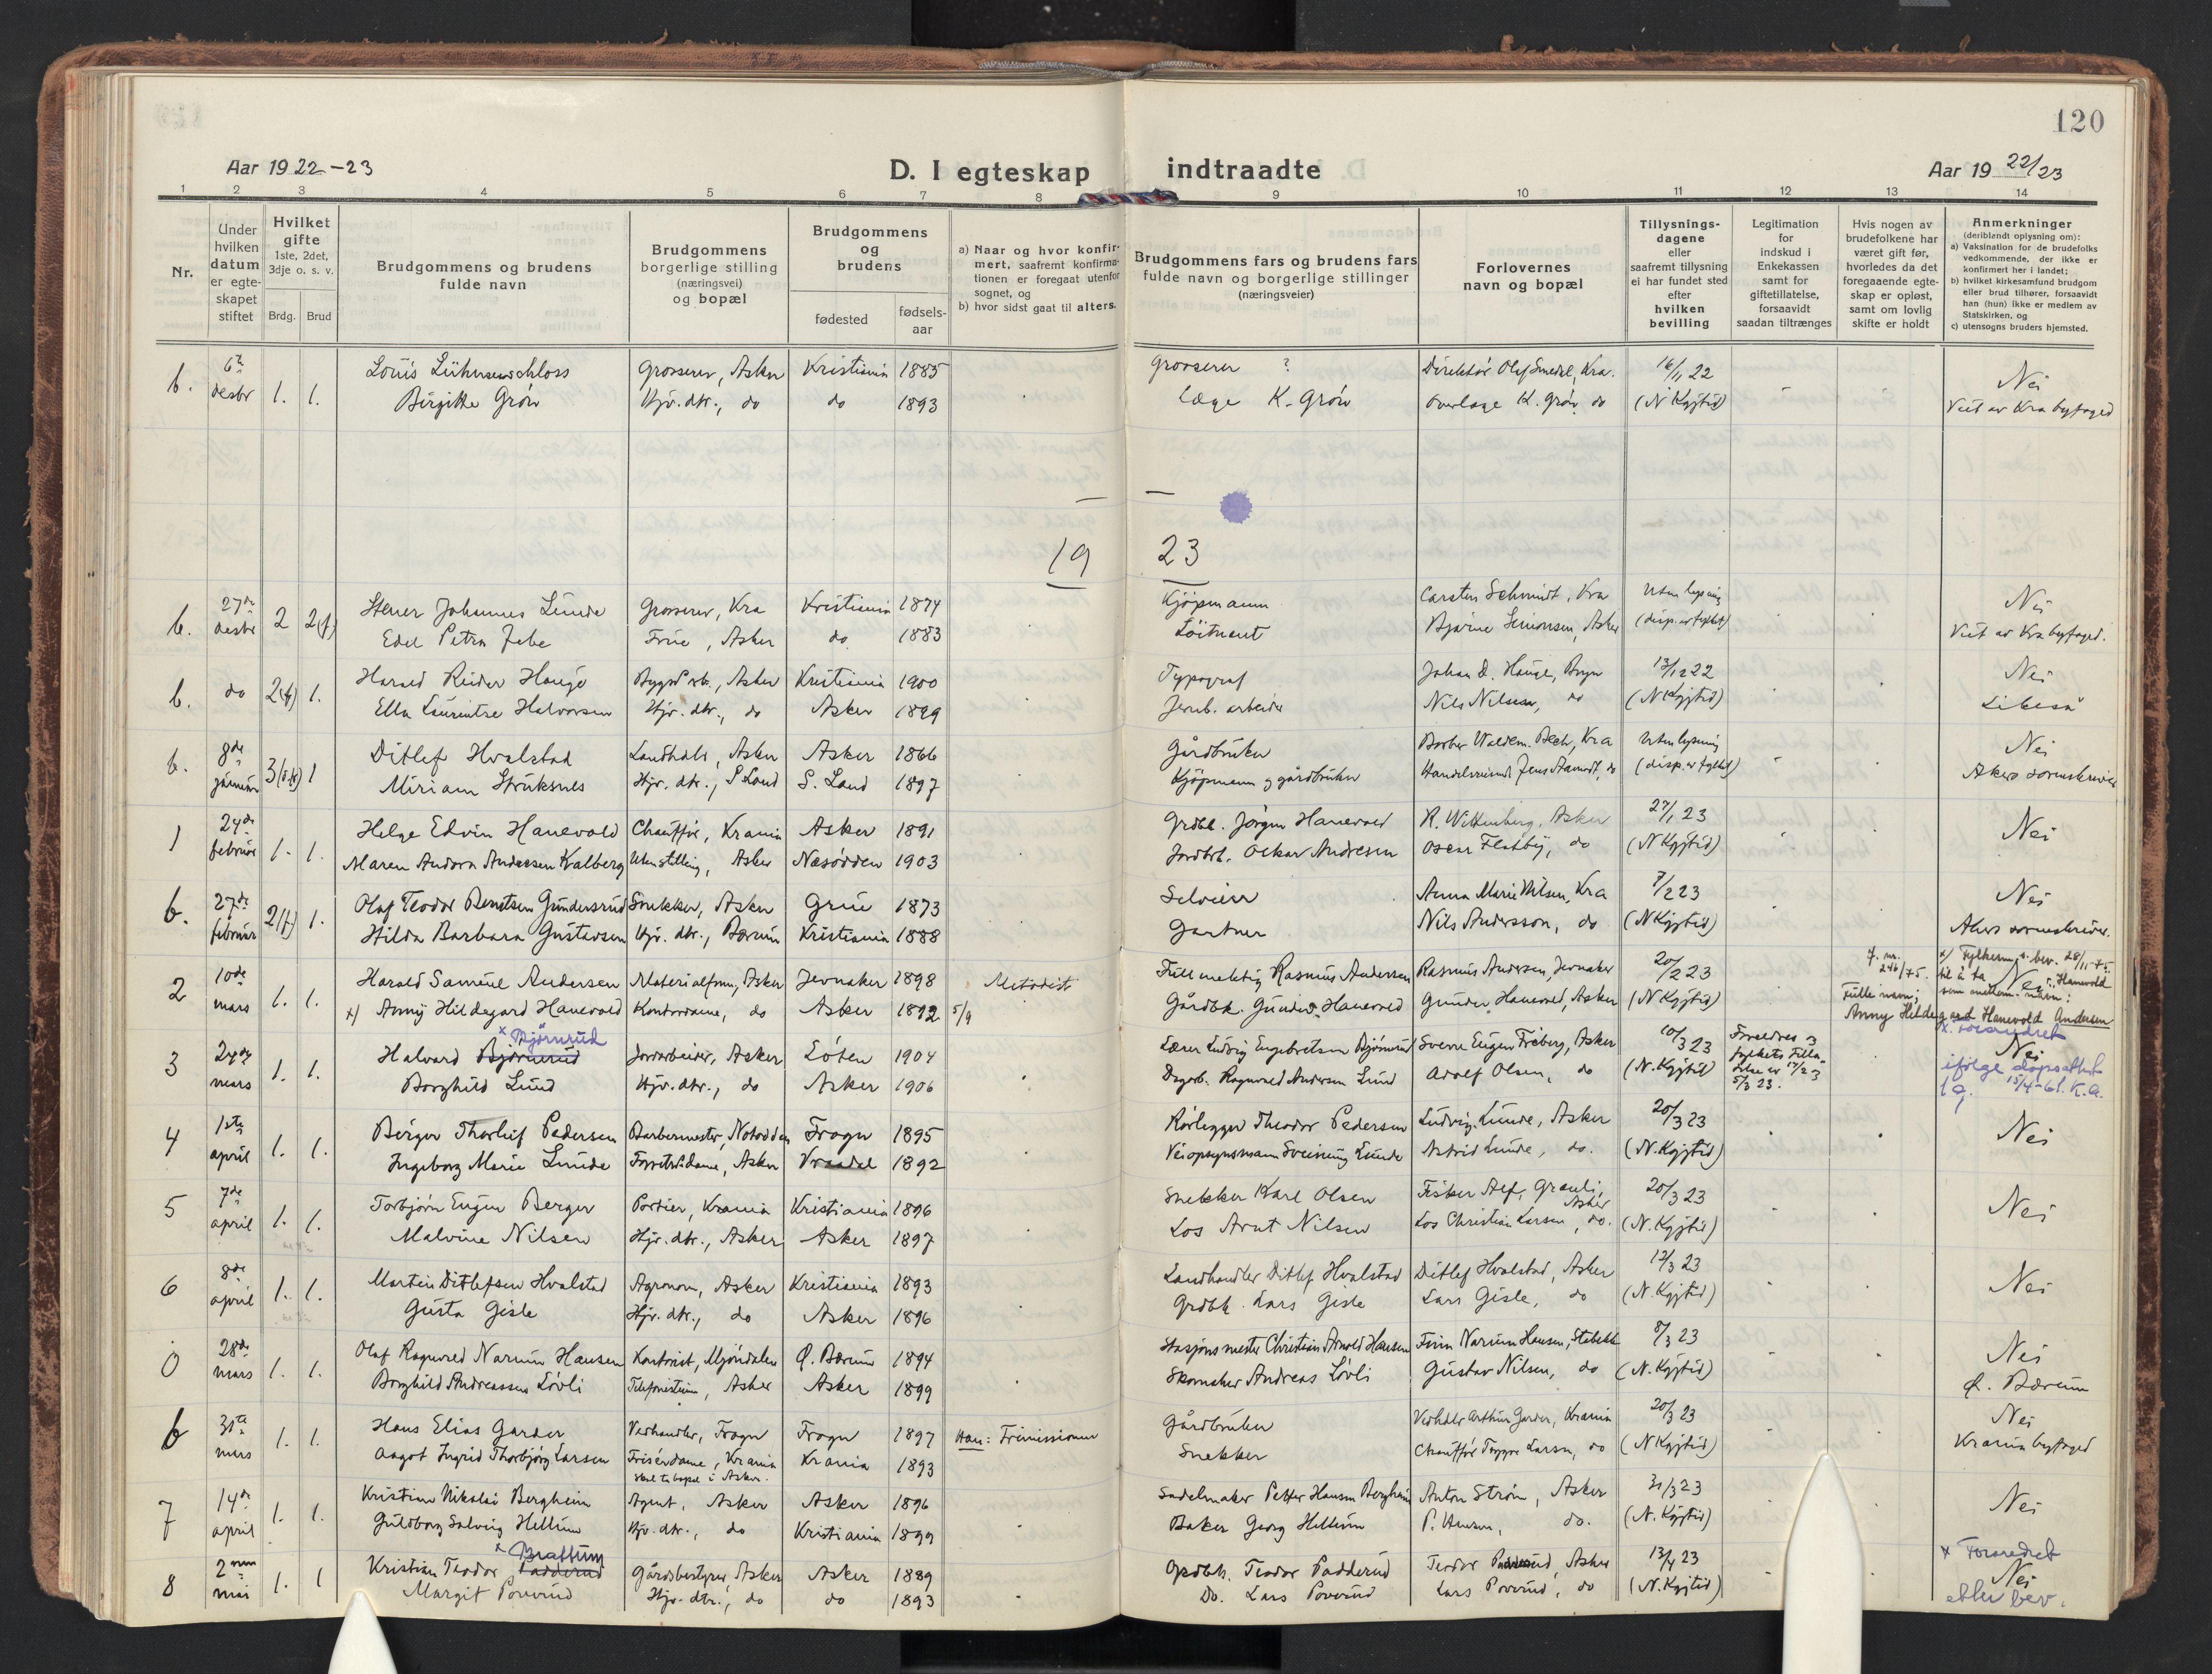 120
Aar 1922-23
D. I egteskap indtraadte
Aar 19 22/23
1 2 3 4 5 6 7 8 9 10 11 12 13 14
Nr.
Under hvilken datum er egte-skapet stiftet
Hvilket gifte 1ste, 2det, 3dje o. s. v.
Brdg. Brud
Brudgommens og brudens fulde navn
Brudgommens borgerlige stilling (næringsvei) og bopæl
Brudgommens og brudens
fødested
fødsels-aar
a) Naar og hvor konfir-mert, saafremt konfirma-tionen er foregaat utenfor sognet, og
b) hvor sidst gaat til alters.
Brudgommens fars og brudens fars fulde navn og borgerlige stillinger (næringsveier)
Forlovernes navn og bopæl
Tillysnings-dagene eller saafremt tillysning ei har fundet sted efter hvilken bevilling
Legitimation for indskud i Enkekassen samt for giftetillatelse, forsaavidt saadan tiltrænges
Hvis nogen av brudefolkene har været gift før, hvorledes da det foregaaende egte-skap er opløst, samt om lovlig skifte er holdt
Anmerkninger (deriblandt oplysning om):
a) Vaksination for de brudefolks vedkommende, der ikke er konfirmert her i landet;
b) hvilket kirkesamfund brudgom eller brud tilhører, forsaavidt han (hun) ikke er medlem av Statskirken, og
c) utensogns bruders hjemsted.
b. 6te desbr 1. 1. Louis Grosserer, Asker Kristiania 1885 Grosserer ? Direktør Olaf Smedal, Kra. 16/11 22 Nei
Birgitte Grøn Hjv. dtr., do do 1893 Læge K. Grøn Overlæge K. Grøn do (N Kgjtid) Viet av Kra byfoged
19 23
b. 27de desbr 2 2(f) Stener Johannes Lunde Grosserer, Kra Kristiania 1874 Kjöpmann Carsten Schmidt, Kra Uten lysning Nei
Edel Petra Jebe Frue, Asker do 1883 Löitnant Bjarne Simonsen, Asker (disp. av fylket) Viet av Kra byfoged.
b. do 2(f) 1. Harald Reidar Hauge Asker Kristiania 1900 Typograf Johan D. Hauge, Bryn 13/12 22 Nei
Ella Laurentze Halvorsen Hjv. dtr., do Asker 1899 Jernb. arbeider Nils Nilsen, do (N Kgjtid)
b. 8de januar 1 Ditlef Hvalstad Landhdlr, Asker Asker 1866 Gårdbruker Barber Waldem. Bech, Kra Uten lysning Nei
Miriam Struksnes Hjv. dtr., S Land S. Land 1897 Kjöpmann og gårdbruker (disp. av fylket) Akers sorenskriver
1 24de februar 1. 1. Helge Edvin Hanevold Chauffør, Krania Asker 1891 Grdbr. Jørgen Hanevold R. Wittenberg, Asker 27/1 23 Nei
Maren Andora Andresen Kalberg Uten stilling, Asker Næsodden 1903 Jordbr. Oskar Andresen Oscar Flatby, do (N Kgjtid)
b. 27de februar 2(f) 1. Olaf Teodor Berntsen Gundersrud Snekker, Asker Grue 1873 Selveier Anna Marie Nilsen, Kra 7/2 23 Nei
Hilda Barbara Gustavsen Hjv. dtr., Bærum Kristiania 1888 Gartner Nils Andersson, do (N Kgjtid) Akers sorenskriver.
2 10de mars 1. 1. Harald Samuel Andersen Materialforv., Asker Jevnaker 1898 Metodist Fullmektig Rasmus Andersen Rasmus Andersen, Jevnaker 20/2 23 Nei
x) Anny Hildegard Hanevold Kontordame, do Asker 1892 5/9 Gårdbk. Gunder Hanevold Gunder Hanevold, Asker (N Kgjtid)
J. nr. 246/75. x) Fylkesm. s. bev. 28/11-75. til å ta Hanevold som mellomnavn:
Fulle navn; Anny Hildegard Hanevold Andersen
3 24de mars 1. 1. Halvard Bjørnerud x Bjørnrud Jordarbeider, Asker Löten 1904 Lærer Ludvig Engebretsen Björnrud Sverre Eugen Friberg, Asker 10/3 23 Foreldres og fylkets tillatelse av 17/2 23 5/3 23. x. Forandret Nei
Borghild Lund Hjv. dtr., do Asker 1906 Dagarb. Ragnvald Andersen Lund Adolf Olsen, do (N. Kgjtid) ifølge dåpsattest 15/4-61. K.A.
4 1ste april 1. 1. Birger Thorleif Pedersen Barbermester, Notodden Frogn 1895 Rörlegger Theodor Pedersen Ludvig Lunde, Asker 20/3 23 Nei
Ingeborg Marie Lunde Forretn.dame, Asker Vraadal 1892 Veiopsynsmann Sveinung Lunde Astrid Lunde, do. (N. Kgjtid)
5 7de april 1. 1. Torbjørn Eugen Berger Portier, Krania Kristiania 1896 Snekker Karl Olsen Fisker Alf. Grauli, Asker 20/3 23 Nei
Malvine Nilsen Hjv. dtr., Asker Asker 1897 Los Arnt Nilsen Los Christian Larsen, do. (N. Kgjtid)
6 8de april 1. 1. Martin Ditlefsen Hvalstad Agronom, Asker Kristiania 1893 Landhandler Ditlef Hvalstad Ditlef Hvalstad, Asker 17/3 23 Nei
Gusta Gisle Hjv. dtr., do Asker 1896 Grdbk. Lars Gisle Lars Gisle, do (N. Kgjtid)
0 28de mars 1. 1. Olaf Ragnvald Narum Hansen Kontorist, Mjöndalen Ø. Bærum 1894 Stasjonsmester Christian Arnold Hansen Finn Narum Hansen, Stabekk 8/3 23 Nei
Borghild Andreassen Lövli Telefonistinne, Asker Asker 1899 Skomaker Andreas Lövli Gustav Nilsen, do (N. Kgjtid) Ø. Bærum
b 31te mars 1. 1. Hans Elias Garder Vedhandler, Frogn Frogn 1897 Han: Frimissionen Gårdbruker Vedhdlr Arthur Garder, Krania 20/3 23 Nei
Aagot Ingrid Thorbjörg Larsen Frisérdame, Krania skal ta bopæl i Asker. Krania 1893 Snekker Chauffør Trygve Larsen, do (N Kgjtid) Krania byfoged
7 14de april 1. 1. Kristian Nikolai Bergheim Agent, Asker Asker 1896 Sadelmaker Petter Hansen Bergheim Anton Strøm, Asker 21/3 23 Nei
Guldborg Solveig Hellum Hjv. dtr., do Kristiania 1899 Baker Georg Hellum P. Hansen, do. (N. Kgjtid)
8 2nen mai 1. 1 Kristian Teodor Padderud x Brattum Gårdsbestyrer, Asker Asker 1889 Grdbk. Teodor Padderud Teodor Padderud, Asker 13/4 23 x Forandret Nei
Margit Poverud Hjv. dtr., do do 1893 Do. Lars Poverud Lars Poverud, do (N. Kgjtid) etter bev.